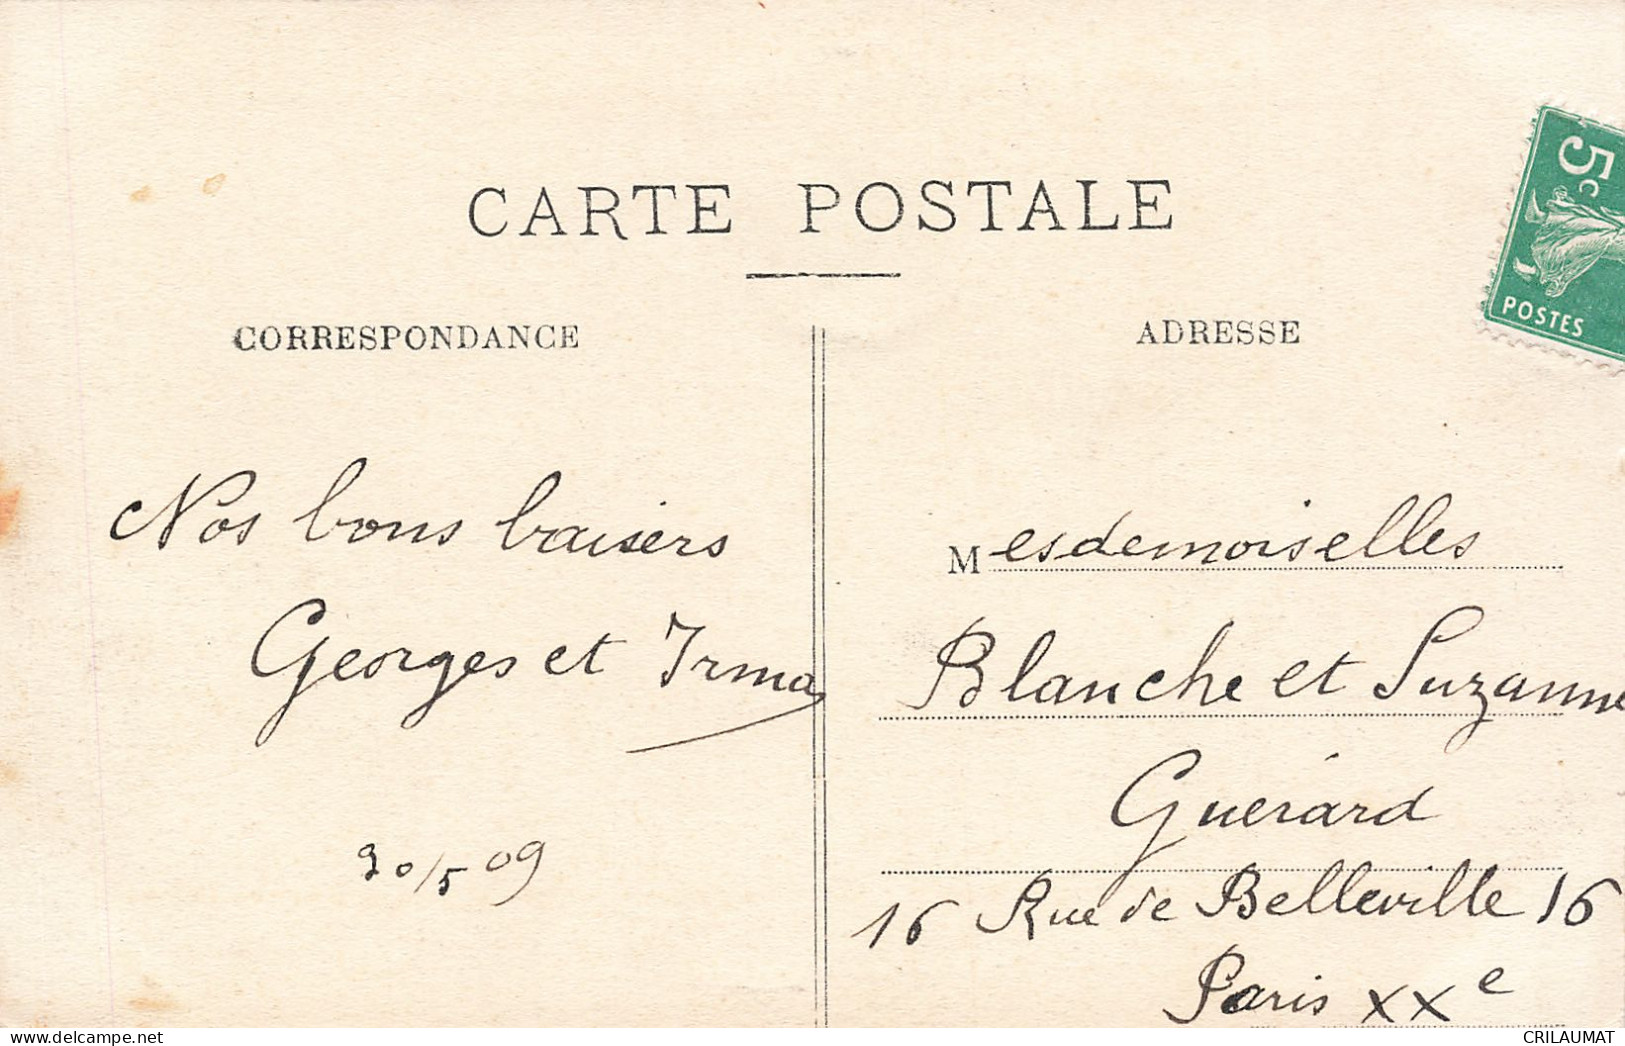 CARTE POSTALE
CORRESPONDANCE
ADRESSE
5c
POSTES
Nos bons baisers
Georges et Irma
30/5 09
Mesdemoiselles
Blanche et Suzanne
Guérard
16 Rue de Belleville 16
Paris XXe
delcampe.net
CRILAUMAT